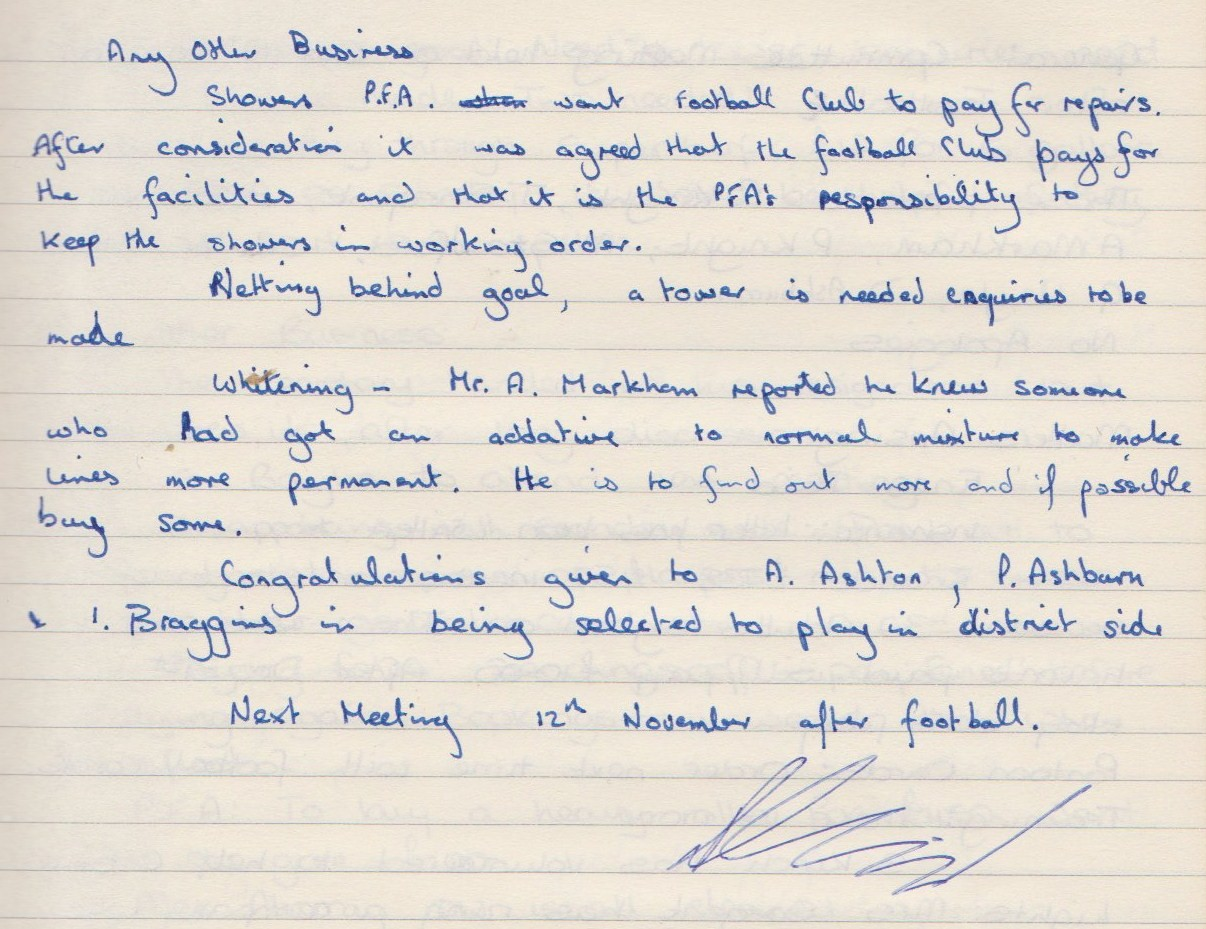 Any Other Business
Showers P.F.A. want football Club to pay for repairs.
After consideration it was agreed that the football Club pays for
the facilities and that it is the PFA's responsibility to
keep the showers in working order.
Netting behind goal, a tower is needed enquiries to be
made
Whitening - Mr. A. Markham reported he knew someone
who had got an addative to normal mixture to make
lines more permanent. He is to find out more and if possible
buy some.
Congratulations given to A. Ashton, P. Ashburn
& I. Braggins in being selected to play in district side
Next Meeting 12th November after football.